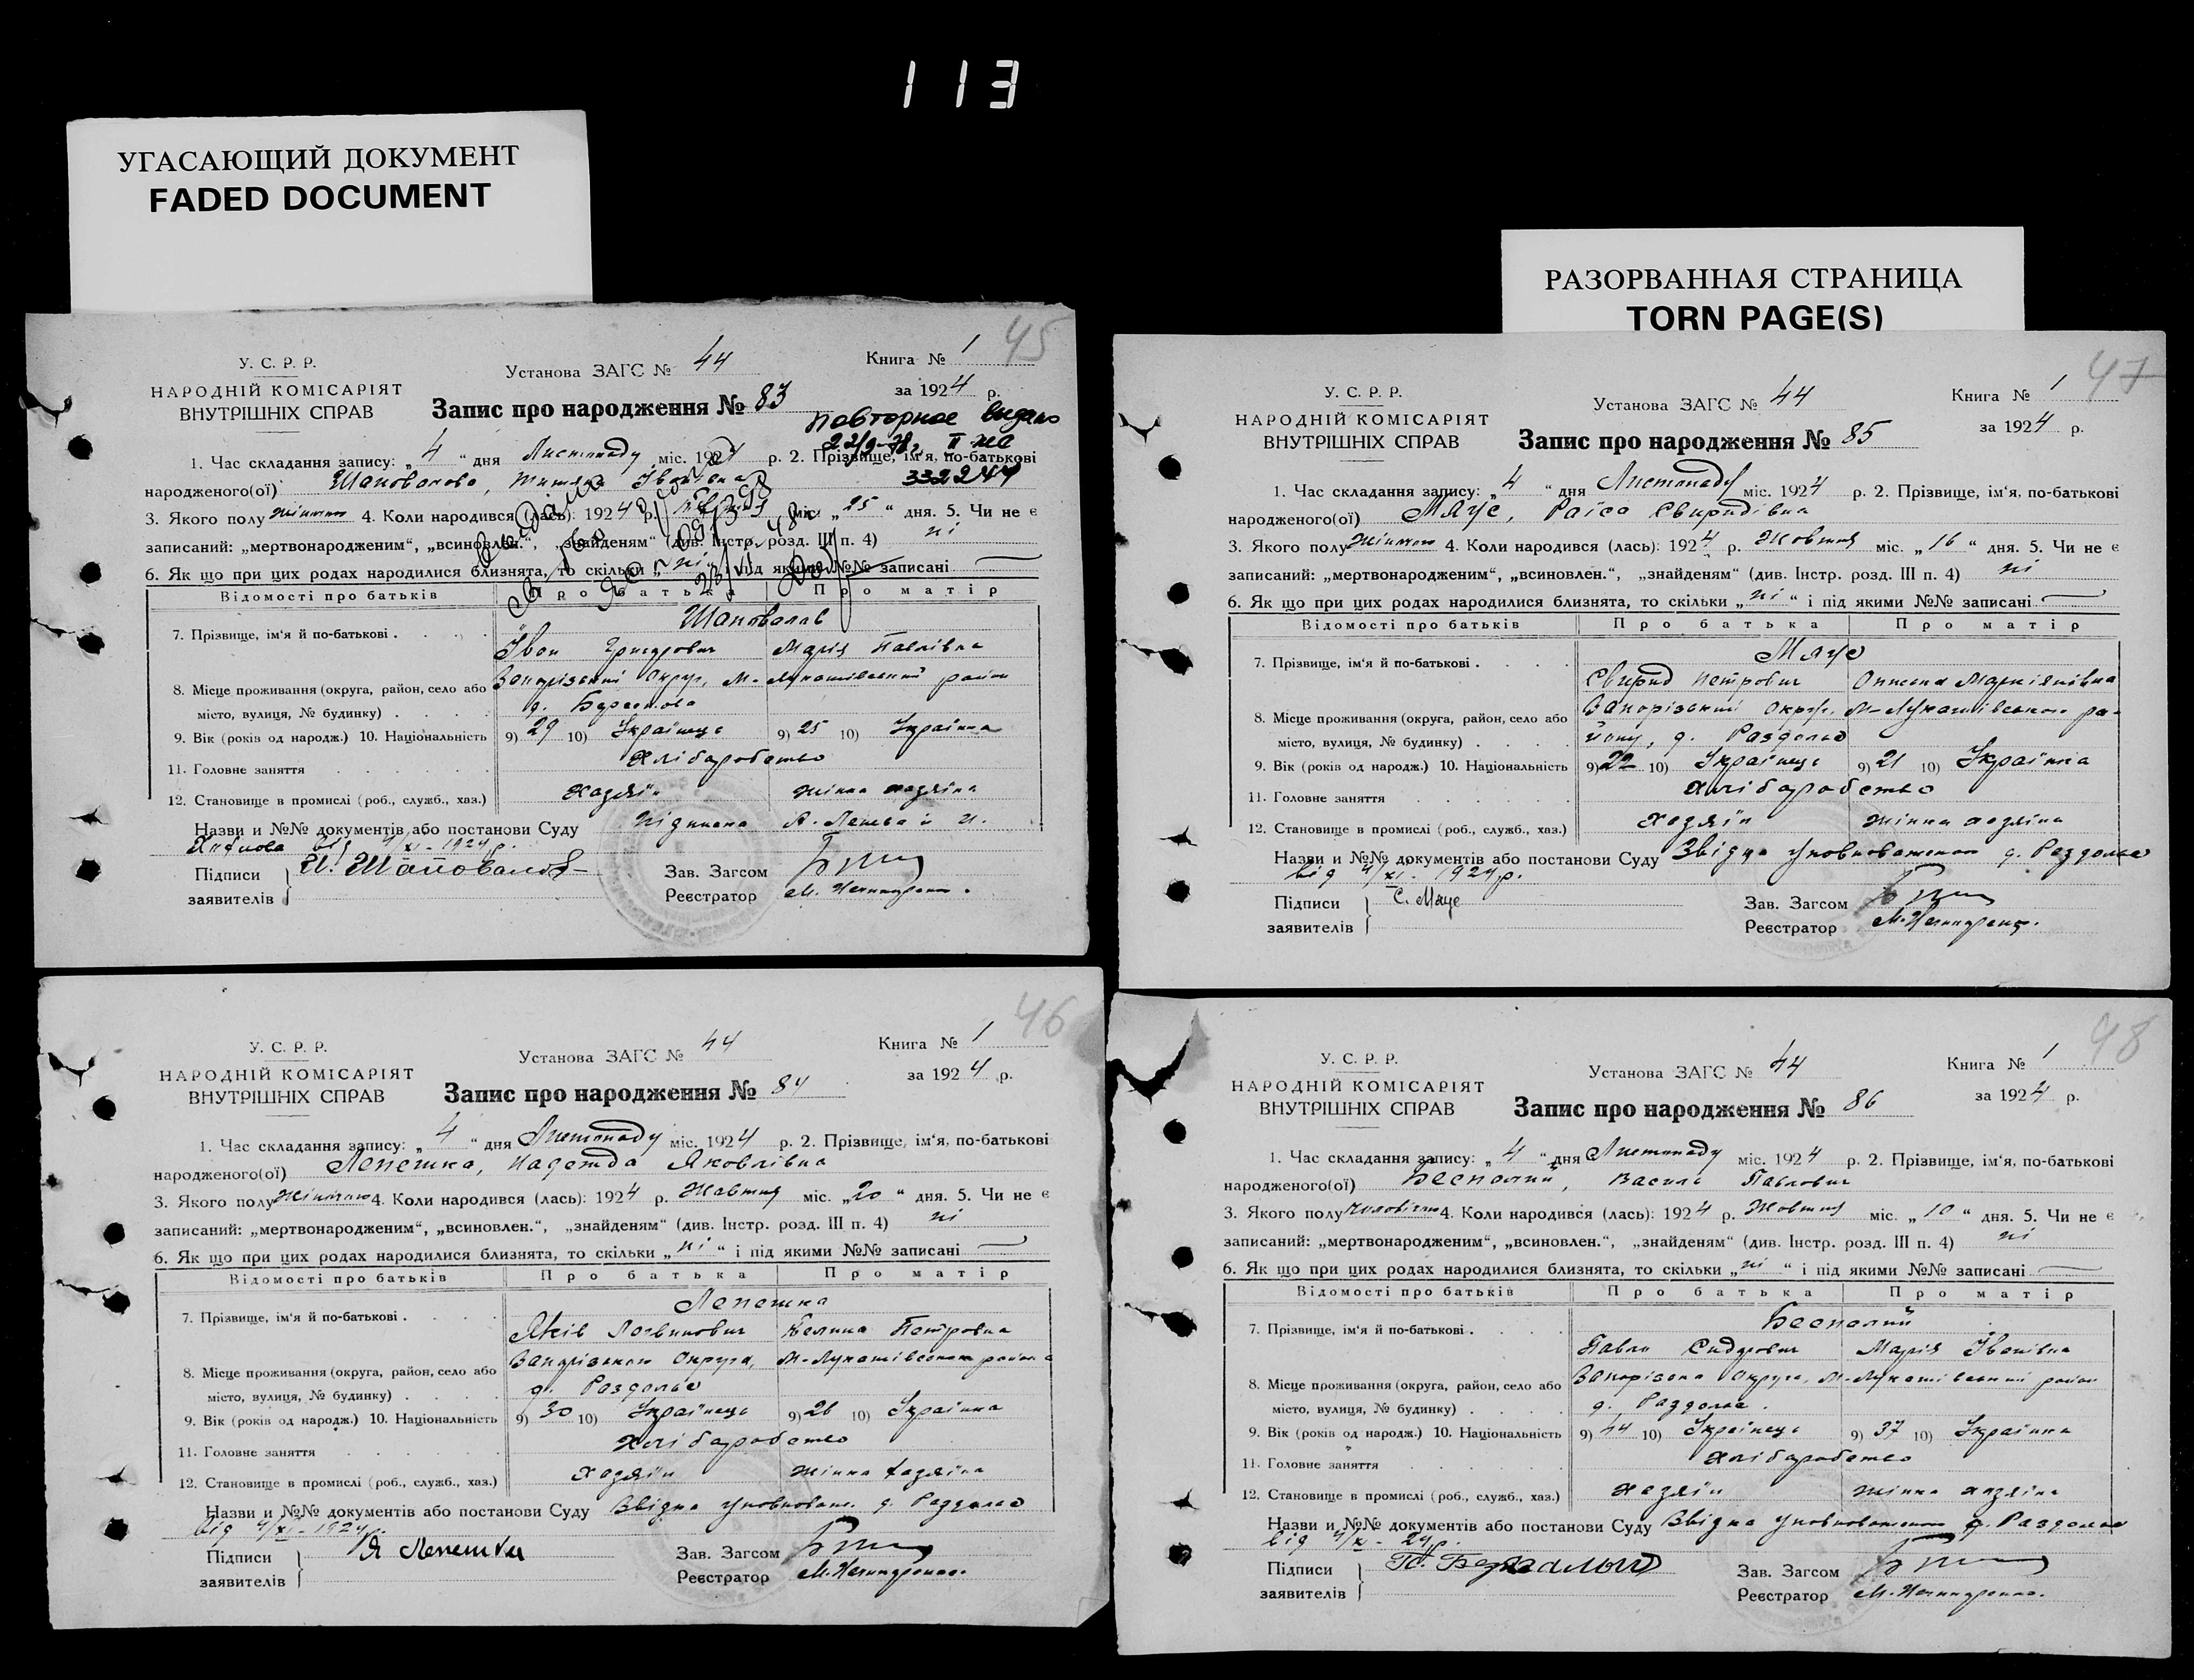 113
УГАСАЮЩИЙ ДОКУМЕНТ
FADED DOCUMENT
РАЗОРВАННАЯ СТРАНИЦА
TORN PAGE(S)
45
У. С. Р. Р.
НАРОДНІЙ КОМІСАРІЯТ
ВНУТРІШНІХ СПРАВ
Установа ЗАГС № 44
Книга № 1
за 1924 р.
Запис про народження № 83
Повторное выдано
22/9-78г. II ЖС
332244
1. Час складання запису: „ 4 “ дня Листопаду міс. 1924 р. 2. Прізвище, ім'я, по-батькові
народженого(ої) Шаповалова, Тетяна Іванівна
3. Якого полу жіночого 4. Коли народився (лась): 1924 р. міс. „ 25 “ дня. 5. Чи не є
записаний: „мертвонародженим“, „всиновлен.“, „знайденям“ (див. Інстр. розд. III п. 4) ні
6. Як що при цих родах народилися близнята, то скільки „ ні “ і під якими №№ записані
Відомості про батьків Про батька Про матір
7. Прізвище, ім'я й по-батькові . Шаповалов
Іван Григорович Марія Павлівна
8. Місце проживання (округа, район, село або Запорізький Округ, М-Лукашівський район
місто, вулиця, № будинку) . д.
9. Вік (років од народж.) 10. Національність 9) 29 10) Українець 9) 25 10) Українка
11. Головне заняття Хліборобство
12. Становище в промислі (роб., служб., хаз.) Хазяїн жінка хазяїна
Назви и №№ документів або постанови Суду
від 4/XI-1924 р.
Підписи заявителів И. Шаповалов
Зав. Загсом
Реєстратор М.
46
У. С. Р. Р.
НАРОДНІЙ КОМІСАРІЯТ
ВНУТРІШНІХ СПРАВ
Установа ЗАГС № 44
Книга № 1
за 1924 р.
Запис про народження № 84
1. Час складання запису: „ 4 “ дня Листопаду міс. 1924 р. 2. Прізвище, ім'я, по-батькові
народженого(ої) Лепешка, Надежда Яковлівна
3. Якого полу Жіночого 4. Коли народився (лась): 1924 р. Жовтня міс. „ 20 “ дня. 5. Чи не є
записаний: „мертвонародженим“, „всиновлен.“, „знайденям“ (див. Інстр. розд. III п. 4) ні
6. Як що при цих родах народилися близнята, то скільки „ ні “ і під якими №№ записані
Відомості про батьків Про батька Про матір
7. Прізвище, ім'я й по-батькові . Лепешка
Яків Логвинович Келина Петровна
8. Місце проживання (округа, район, село або Запорізького Округа, М-Лукашівського района
місто, вулиця, № будинку) . д. Раздолье
9. Вік (років од народж.) 10. Національність 9) 30 10) Українець 9) 26 10) Українка
11. Головне заняття Хліборобство
12. Становище в промислі (роб., служб., хаз.) Хазяїн жінка хазяїна
Назви и №№ документів або постанови Суду Звідка уповноваж. д. Раздолье
від 4/XI-1924 р.
Підписи заявителів Я Лепешка
Зав. Загсом
Реєстратор М.
47
У. С. Р. Р.
НАРОДНІЙ КОМІСАРІЯТ
ВНУТРІШНІХ СПРАВ
Установа ЗАГС № 44
Книга № 1
за 1924 р.
Запис про народження № 85
1. Час складання запису: „ 4 “ дня Листопаду міс. 1924 р. 2. Прізвище, ім'я, по-батькові
народженого(ої) Мяус, Раїса Свиридівна
3. Якого полу Жіночого 4. Коли народився (лась): 1924 р. Жовтня міс. „ 16 “ дня. 5. Чи не є
записаний: „мертвонародженим“, „всиновлен.“, „знайденям“ (див. Інстр. розд. III п. 4) ні
6. Як що при цих родах народилися близнята, то скільки „ ні “ і під якими №№ записані
Відомості про батьків Про батька Про матір
7. Прізвище, ім'я й по-батькові . Мяус
Свирид Петрович Маркіянівна
8. Місце проживання (округа, район, село або Запорізький Округ, М-Лукашівського ра-
місто, вулиця, № будинку) . йону, д. Раздолье
9. Вік (років од народж.) 10. Національність 9) 22 10) Українець 9) 21 10) Українка
11. Головне заняття Хліборобство
12. Становище в промислі (роб., служб., хаз.) Хазяїн жінка хазяїна
Назви и №№ документів або постанови Суду Звідка уповноваженого д. Раздолье
від 4/XI-1924 р.
Підписи заявителів С. Мяус
Зав. Загсом
Реєстратор М.
48
У. С. Р. Р.
НАРОДНІЙ КОМІСАРІЯТ
ВНУТРІШНІХ СПРАВ
Установа ЗАГС № 44
Книга № 1
за 1924 р.
Запис про народження № 86
1. Час складання запису: „ 4 “ дня Листопаду міс. 1924 р. 2. Прізвище, ім'я, по-батькові
народженого(ої) Беспалий, Василь Павлович
3. Якого полу чоловічого 4. Коли народився (лась): 1924 р. Жовтня міс. „ 10 “ дня. 5. Чи не є
записаний: „мертвонародженим“, „всиновлен.“, „знайденям“ (див. Інстр. розд. III п. 4) ні
6. Як що при цих родах народилися близнята, то скільки „ ні “ і під якими №№ записані
Відомості про батьків Про батька Про матір
7. Прізвище, ім'я й по-батькові . Беспалий
Павло Сидорович Марія Іванівна
8. Місце проживання (округа, район, село або Запорізька Округа, М-Лукашівський район
місто, вулиця, № будинку) . д. Раздолье.
9. Вік (років од народж.) 10. Національність 9) 44 10) Українець 9) 37 10) Українка
11. Головне заняття Хліборобство
12. Становище в промислі (роб., служб., хаз.) Хазяїн жінка хазяїна
Назви и №№ документів або постанови Суду Звідка уповноваженого д. Раздолье
від 4/XI-24 р.
Підписи заявителів
Зав. Загсом
Реєстратор М.